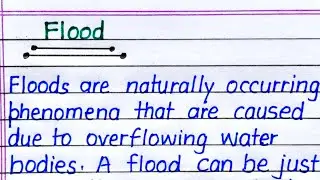 Flood
Floods are naturally occurring
phenomena that are caused
due to overflowing water
bodies. A flood can be just